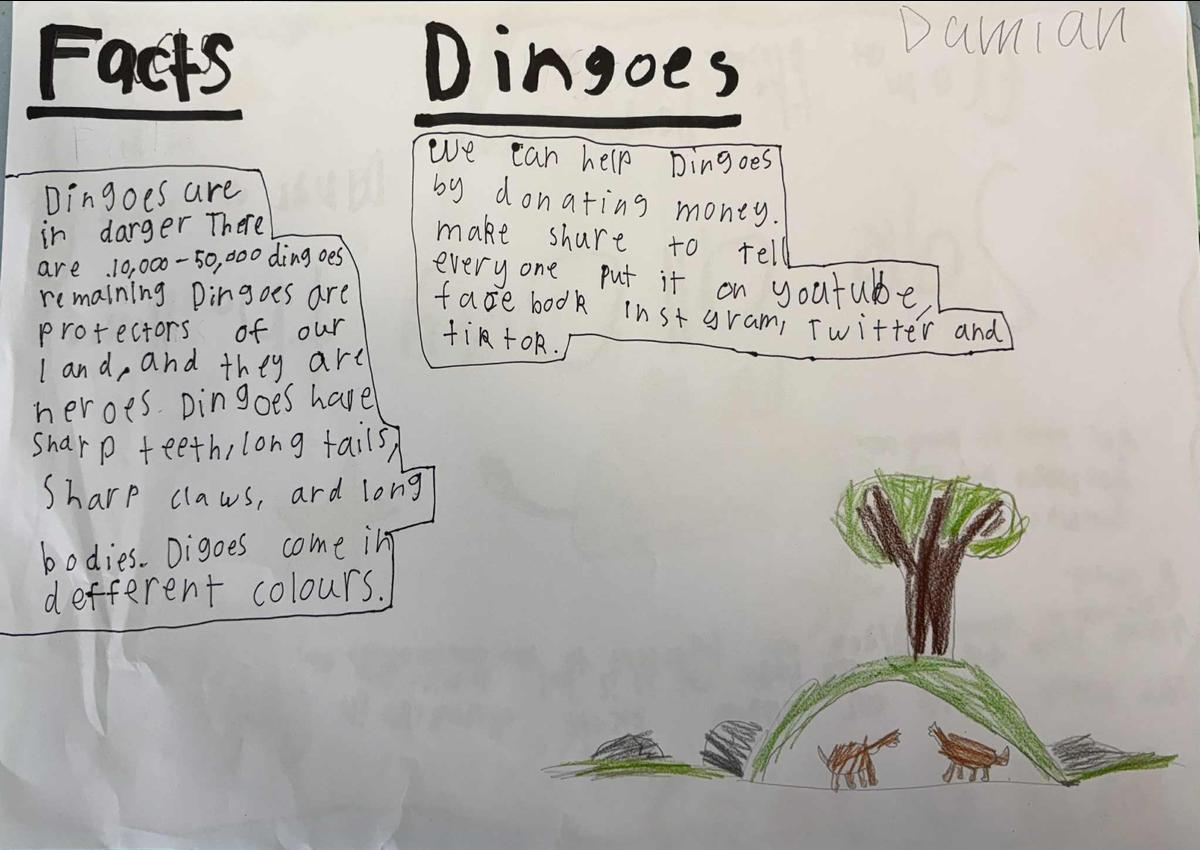 Facts
Dingoes are
in darger There
are .10,000-50,000 dingoes
remaining Dingoes are
protectors of our
land, and they are
heroes. Dingoes have
sharp teeth, long tails,
Sharp claws, ard long
bodies. Digoes come in
defferent colours.
Dingoes
We can help Dingoes
by donating money.
make shure to tell
every one put it on youtube,
face book Instgram, Twitter and
tiktok.
Damian